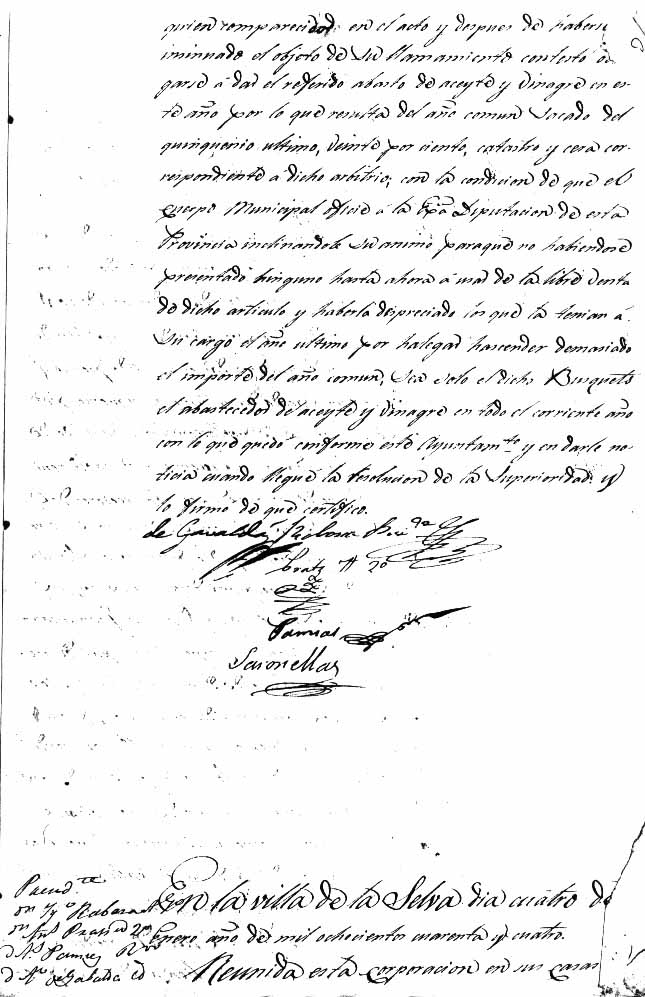 quien comparecido en el acto y despues de habers
insinuado el objeto de su llamamiento contestó o
garse á dar el referido abasto de aceyte y vinagre en es-
te año por lo que resulta del año comun sacado del
quinquenio ultimo, veinte por ciento, catastro y cera cor-
respondiente á dicho arbitrio; con la condicion de que el
cuerpo Municipal oficie á la Exa Diputacion de esta
Provincia inclinandole su animo paraque no habiendose
presentado ninguno hasta ahora á usar de la libre venta
de dicho articulo y haberla despreciado los que la tenian á
su cargo el año ultimo por halegar hascender demasiado
el importe del año comun, sea solo el dicho Busquets
el abastecedor de aceyte y vinagre en todo el corriente año
con lo que quedó conforme este Ayuntamto. y en darle no-
ticia cuando llegue la resolucion de la Superioridad y
lo firmó de que certifico.
de Gavaldá
Pratz
Pamies
Saronellas
En la villa de la Selva dia cuatro de
Enero año de mil ochocientos cuarenta y cuatro.
Reunida esta corporacion en sus casas